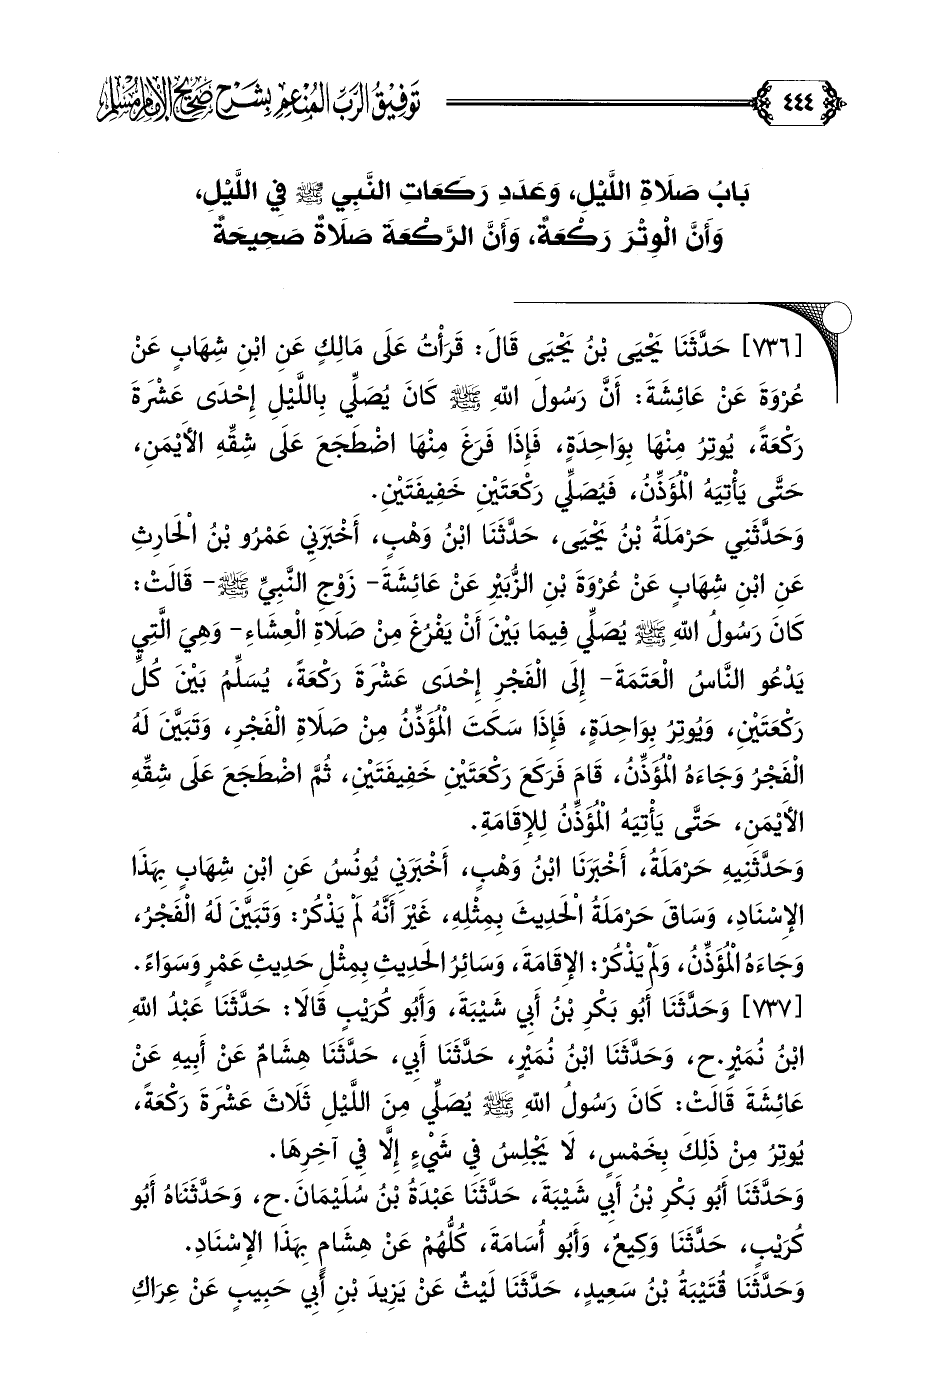 ٤٤٤ توفيق الرب المنعم بشرح صحيح الإمام مسلم
بَابُ صَلَاةِ اللَّيْلِ، وَعَدَدِ رَكَعَاتِ النَّبِي ﷺ فِي اللَّيْلِ،
وَأَنَّ الْوِتْرَ رَكْعَةٌ، وَأَنَّ الرَّكْعَةَ صَلَاةٌ صَحِيحَةٌ
[٧٣٦] حَدَّثَنَا يَحْيَى بْنُ يَحْيَى قَالَ: قَرَأْتُ عَلَى مَالِكٍ عَنِ ابْنِ شِهَابٍ عَنْ
عُرْوَةَ عَنْ عَائِشَةَ: أَنَّ رَسُولَ اللهِ ﷺ كَانَ يُصَلِّي بِاللَّيْلِ إِحْدَى عَشْرَةَ
رَكْعَةً، يُوتِرُ مِنْهَا بِوَاحِدَةٍ، فَإِذَا فَرَغَ مِنْهَا اضْطَجَعَ عَلَى شِقِّهِ الأَيْمَنِ،
حَتَّى يَأْتِيَهُ الْمُؤَذِّنُ، فَيُصَلِّي رَكْعَتَيْنِ خَفِيفَتَيْنِ.
وَحَدَّثَنِي حَرْمَلَةُ بْنُ يَحْيَى، حَدَّثَنَا ابْنُ وَهْبٍ، أَخْبَرَنِي عَمْرُو بْنُ الْحَارِثِ
عَنِ ابْنِ شِهَابٍ عَنْ عُرْوَةَ بْنِ الزُّبَيْرِ عَنْ عَائِشَةَ- زَوْجِ النَّبِيِّ ﷺ- قَالَتْ:
كَانَ رَسُولُ اللهِ ﷺ يُصَلِّي فِيمَا بَيْنَ أَنْ يَفْرُغَ مِنْ صَلَاةِ الْعِشَاءِ- وَهِيَ الَّتِي
يَدْعُو النَّاسُ الْعَتَمَةَ- إِلَى الْفَجْرِ إِحْدَى عَشْرَةَ رَكْعَةً، يُسَلِّمُ بَيْنَ كُلِّ
رَكْعَتَيْنِ، وَيُوتِرُ بِوَاحِدَةٍ، فَإِذَا سَكَتَ الْمُؤَذِّنُ مِنْ صَلَاةِ الْفَجْرِ، وَتَبَيَّنَ لَهُ
الْفَجْرُ وَجَاءَهُ الْمُؤَذِّنُ، قَامَ فَرَكَعَ رَكْعَتَيْنِ خَفِيفَتَيْنِ، ثُمَّ اضْطَجَعَ عَلَى شِقِّهِ
الأَيْمَنِ، حَتَّى يَأْتِيَهُ الْمُؤَذِّنُ لِلإِقَامَةِ.
وَحَدَّثَنِيهِ حَرْمَلَةُ، أَخْبَرَنَا ابْنُ وَهْبٍ، أَخْبَرَنِي يُونُسُ عَنِ ابْنِ شِهَابٍ بِهَذَا
الإِسْنَادِ، وَسَاقَ حَرْمَلَةُ الْحَدِيثَ بِمِثْلِهِ، غَيْرَ أَنَّهُ لَمْ يَذْكُرْ: وَتَبَيَّنَ لَهُ الْفَجْرُ،
وَجَاءَهُ الْمُؤَذِّنُ، وَلَمْ يَذْكُرْ: الإِقَامَةَ، وَسَائِرُ الْحَدِيثِ بِمِثْلِ حَدِيثِ عَمْرٍو سَوَاءً.
[٧٣٧] وَحَدَّثَنَا أَبُو بَكْرِ بْنُ أَبِي شَيْبَةَ، وَأَبُو كُرَيْبٍ قَالَا: حَدَّثَنَا عَبْدُ اللهِ
ابْنُ نُمَيْرٍ.ح، وَحَدَّثَنَا ابْنُ نُمَيْرٍ، حَدَّثَنَا أَبِي، حَدَّثَنَا هِشَامٌ عَنْ أَبِيهِ عَنْ
عَائِشَةَ قَالَتْ: كَانَ رَسُولُ اللهِ ﷺ يُصَلِّي مِنَ اللَّيْلِ ثَلَاثَ عَشْرَةَ رَكْعَةً،
يُوتِرُ مِنْ ذَلِكَ بِخَمْسٍ، لَا يَجْلِسُ فِي شَيْءٍ إِلَّا فِي آخِرِهَا.
وَحَدَّثَنَا أَبُو بَكْرِ بْنُ أَبِي شَيْبَةَ، حَدَّثَنَا عَبْدَةُ بْنُ سُلَيْمَانَ.ح، وَحَدَّثَنَاهُ أَبُو
كُرَيْبٍ، حَدَّثَنَا وَكِيعٌ، وَأَبُو أُسَامَةَ، كُلُّهُمْ عَنْ هِشَامٍ بِهَذَا الإِسْنَادِ.
وَحَدَّثَنَا قُتَيْبَةُ بْنُ سَعِيدٍ، حَدَّثَنَا لَيْثٌ عَنْ يَزِيدَ بْنِ أَبِي حَبِيبٍ عَنْ عِرَاكِ